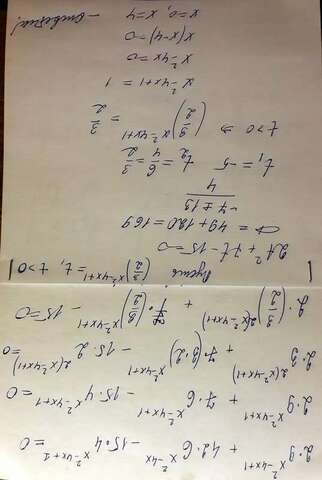 2·9^(x²-4x+1) + 42·6^(x²-4x) - 15·4^(x²-4x+1) = 0
2·9^(x²-4x+1) + 7·6^(x²-4x+1) - 15·4^(x²-4x+1) = 0
2·3^(2(x²-4x+1)) + 7·(3·2)^(x²-4x+1) - 15·2^(2(x²-4x+1)) = 0
2·(3/2)^(2(x²-4x+1)) + 7·(3/2)^(x²-4x+1) - 15 = 0
[Пусть (3/2)^(x²-4x+1) = t, t>0]
2t² + 7t - 15 = 0
D = 49 + 120 = 169
(-7 ± 13)/4
t₁ = -5 t₂ = 6/4 = 3/2
t>0 ⇒ (3/2)^(x²-4x+1) = 3/2
x²-4x+1 = 1
x²-4x = 0
x(x-4) = 0
x=0, x=4 - ответы!